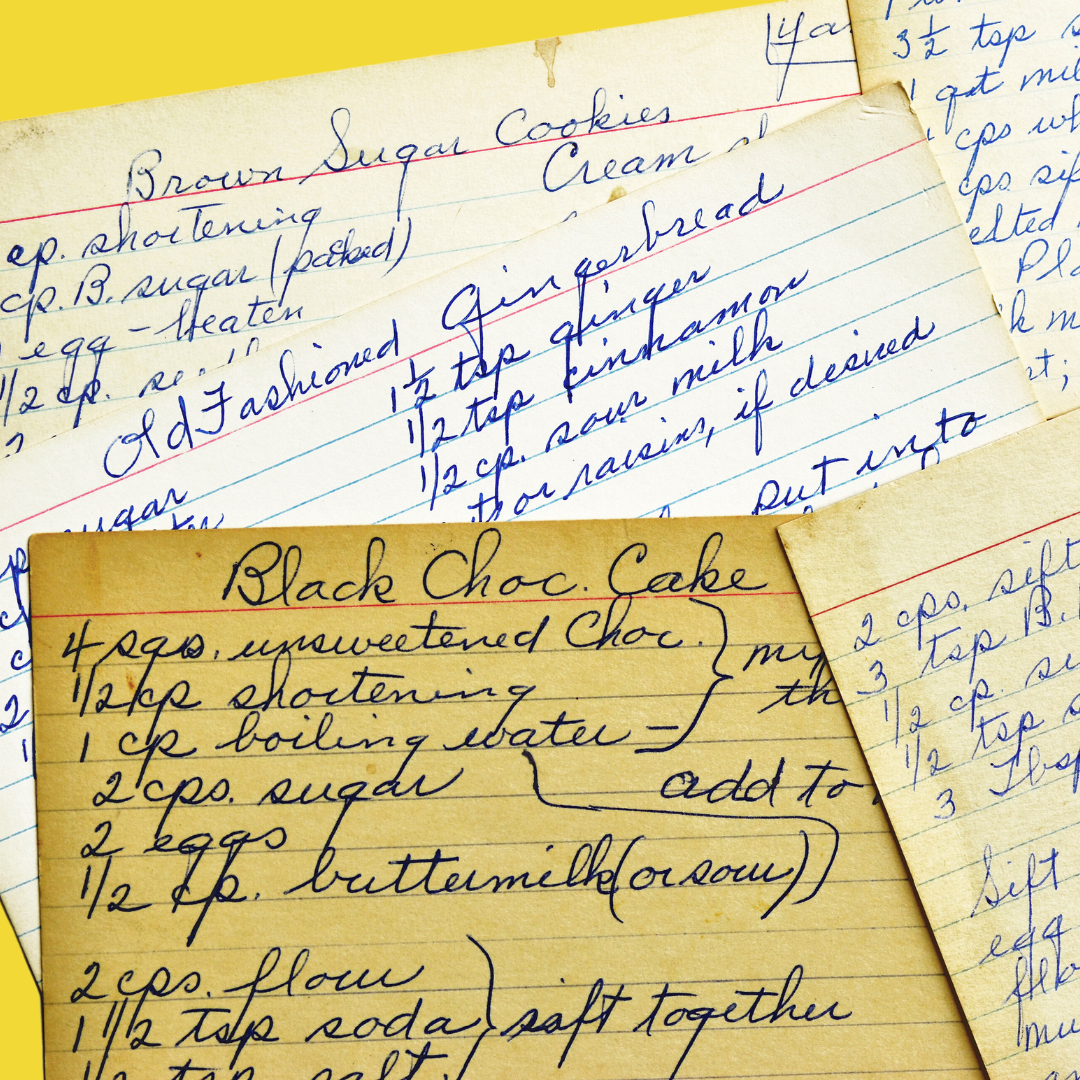 Brown Sugar Cookies
Cream
cp. shortening
cp. B. sugar (packed)
egg - beaten
1/2 cp.
3 1/2 tsp
1 qt mil
cps wh
cps sif
elted
Pla
k m
Old Fashioned Gingerbread
1 1/2 tsp ginger
1/2 tsp cinnamon
1/2 cp. sour milk
or raisins, if desired
put into
sugar
Black Choc. Cake
4 sqs. unsweetened Choc.
1/2 cp shortening
1 cp boiling water
2 cps. sugar
add to
2 eggs
1/2 cp. buttermilk (or sour)
2 cps. flour
1 1/2 tsp soda
sift together
1/2 tsp salt
2 cps. sift
3 tsp B.
1/2 cp.
1/2 tsp
3 Tbsp
Sift
egg